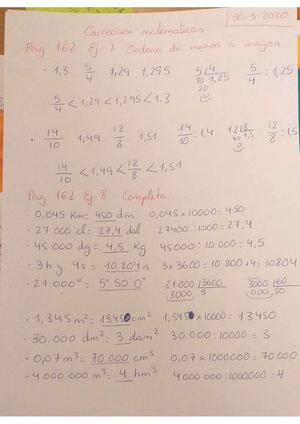 30-3-2020
Corrección matemáticas
Pag 162 Ej 7 Ordena de menor a mayor
· 1,3 5/4 1,29 1,295 5 | 4 5/4 = 1,25
10 1,25
20
0
5/4 < 1,29 < 1,295 < 1,3
· 14/10 1,49 12/8 1,51 14/10 = 1,4 12 | 8 12/8 = 1,5
40 1,5
0
14/10 < 1,49 < 12/8 < 1,51
Pag 162 Ej 8 Completa.
· 0,045 Km = 450 dm 0,045 x 10000 = 450
· 27 000 cl = 27,4 dal 27400 : 1000 = 27,4
· 45 000 dg = 4,5 Kg 45000 : 10.000 = 4,5
· 3 h y 4 s = 10 804 s 3 x 3600 = 10 800 + 4 = 10804
· 21.000" = 5° 50' 0" 21.000 | 3600 3000 | 60
3000 5 000 50
· 1,345 m² = 13450 cm² 1,345 x 10000 = 13450
· 30.000 dm² = 3 dam² 30.000 : 10000 = 3
· 0,07 m³ = 70.000 cm³ 0,07 x 1000000 = 70.000
· 4 000 000 m³ = 4 hm³ 4 000 000 : 1000.000 = 4